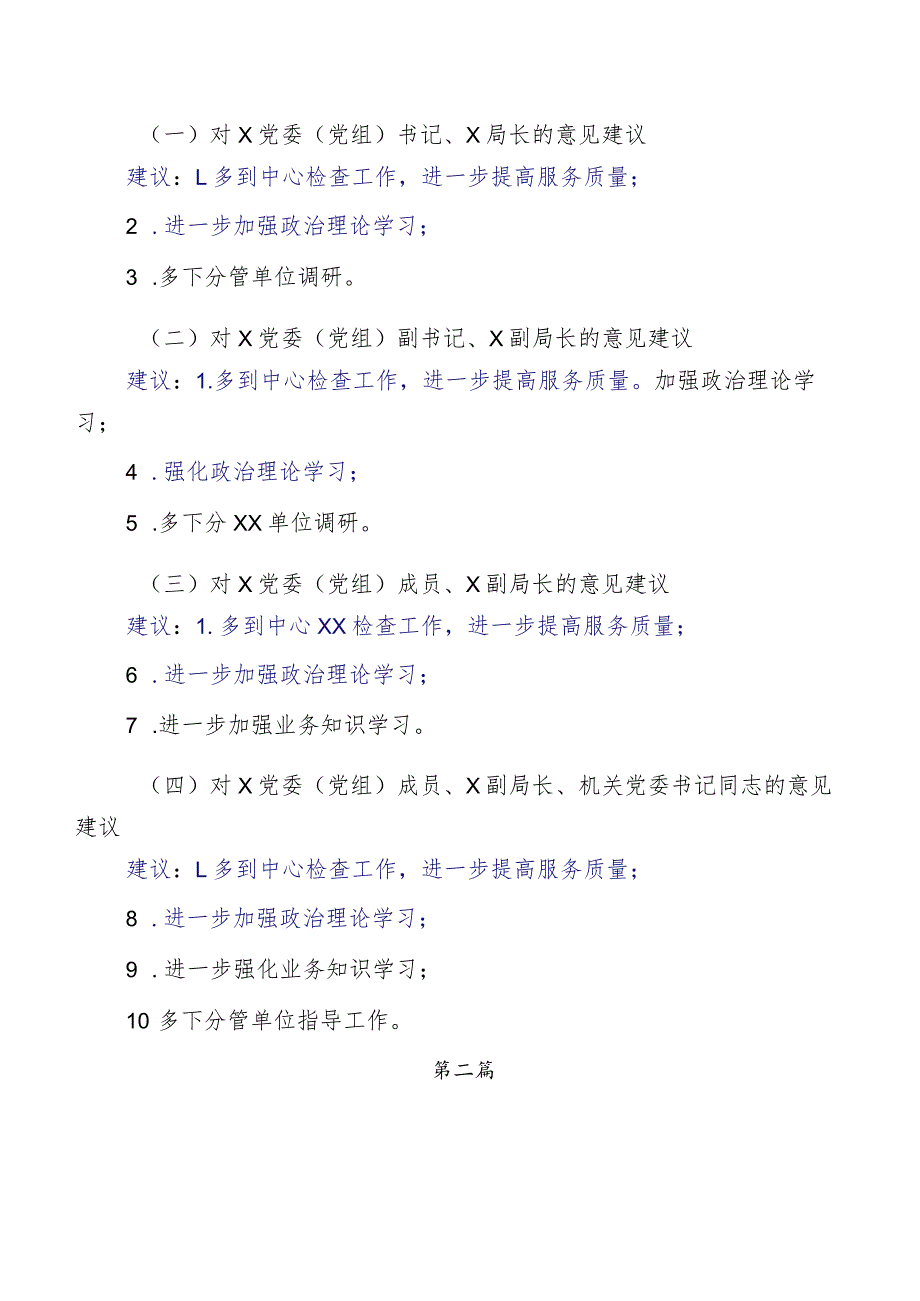 （一）对X党委（党组）书记、X局长的意见建议
建议：L多到中心检查工作，进一步提高服务质量；
2 .进一步加强政治理论学习；
3 .多下分管单位调研。
（二）对X党委（党组）副书记、X副局长的意见建议
建议：1.多到中心检查工作，进一步提高服务质量。加强政治理论学
习；
4 .强化政治理论学习；
5 .多下分XX单位调研。
（三）对X党委（党组）成员、X副局长的意见建议
建议：1.多到中心XX检查工作，进一步提高服务质量；
6 .进一步加强政治理论学习；
7 .进一步加强业务知识学习。
（四）对X党委（党组）成员、X副局长、机关党委书记同志的意见
建议
建议：L多到中心检查工作，进一步提高服务质量；
8 .进一步加强政治理论学习；
9 .进一步强化业务知识学习；
10 多下分管单位指导工作。
第二篇